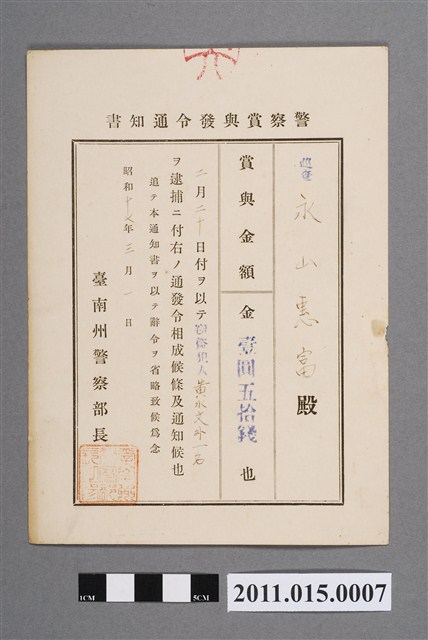 警察賞與發令通知書
巡查 永山惠富殿
賞與金額 金壹圓五拾錢也
二月二十日付ヲ以テ窃盜犯人黃永文外一名
ヲ逮捕ニ付右ノ通發令相成候條及通知候也
追テ本通知書ヲ以テ辭令ヲ省略致候爲念
昭和十七年三月一日
臺南州警察部長
1CM
5CM
2011.015.0007